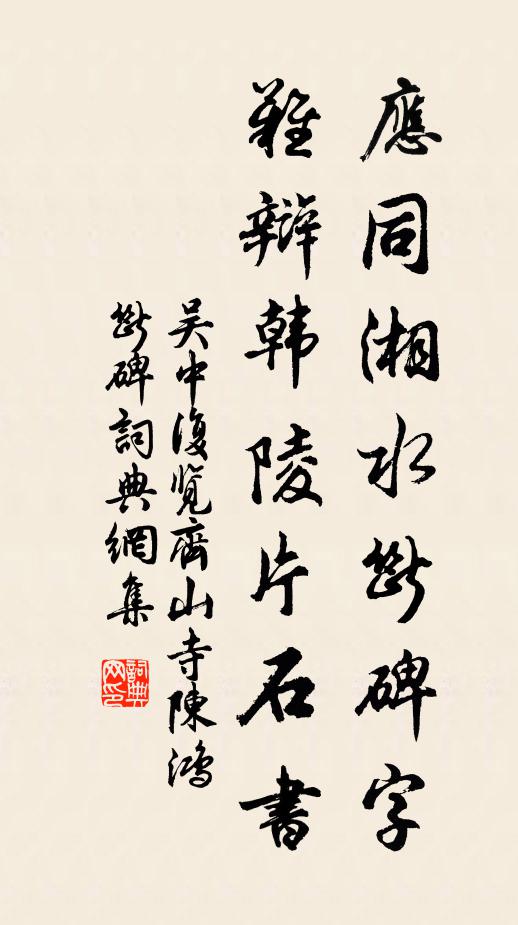 應同湘水斷碑字
難辯韓陵片石書
吳中復覽齊山寺陳鴻
斷碑詞典網集
詞典网印